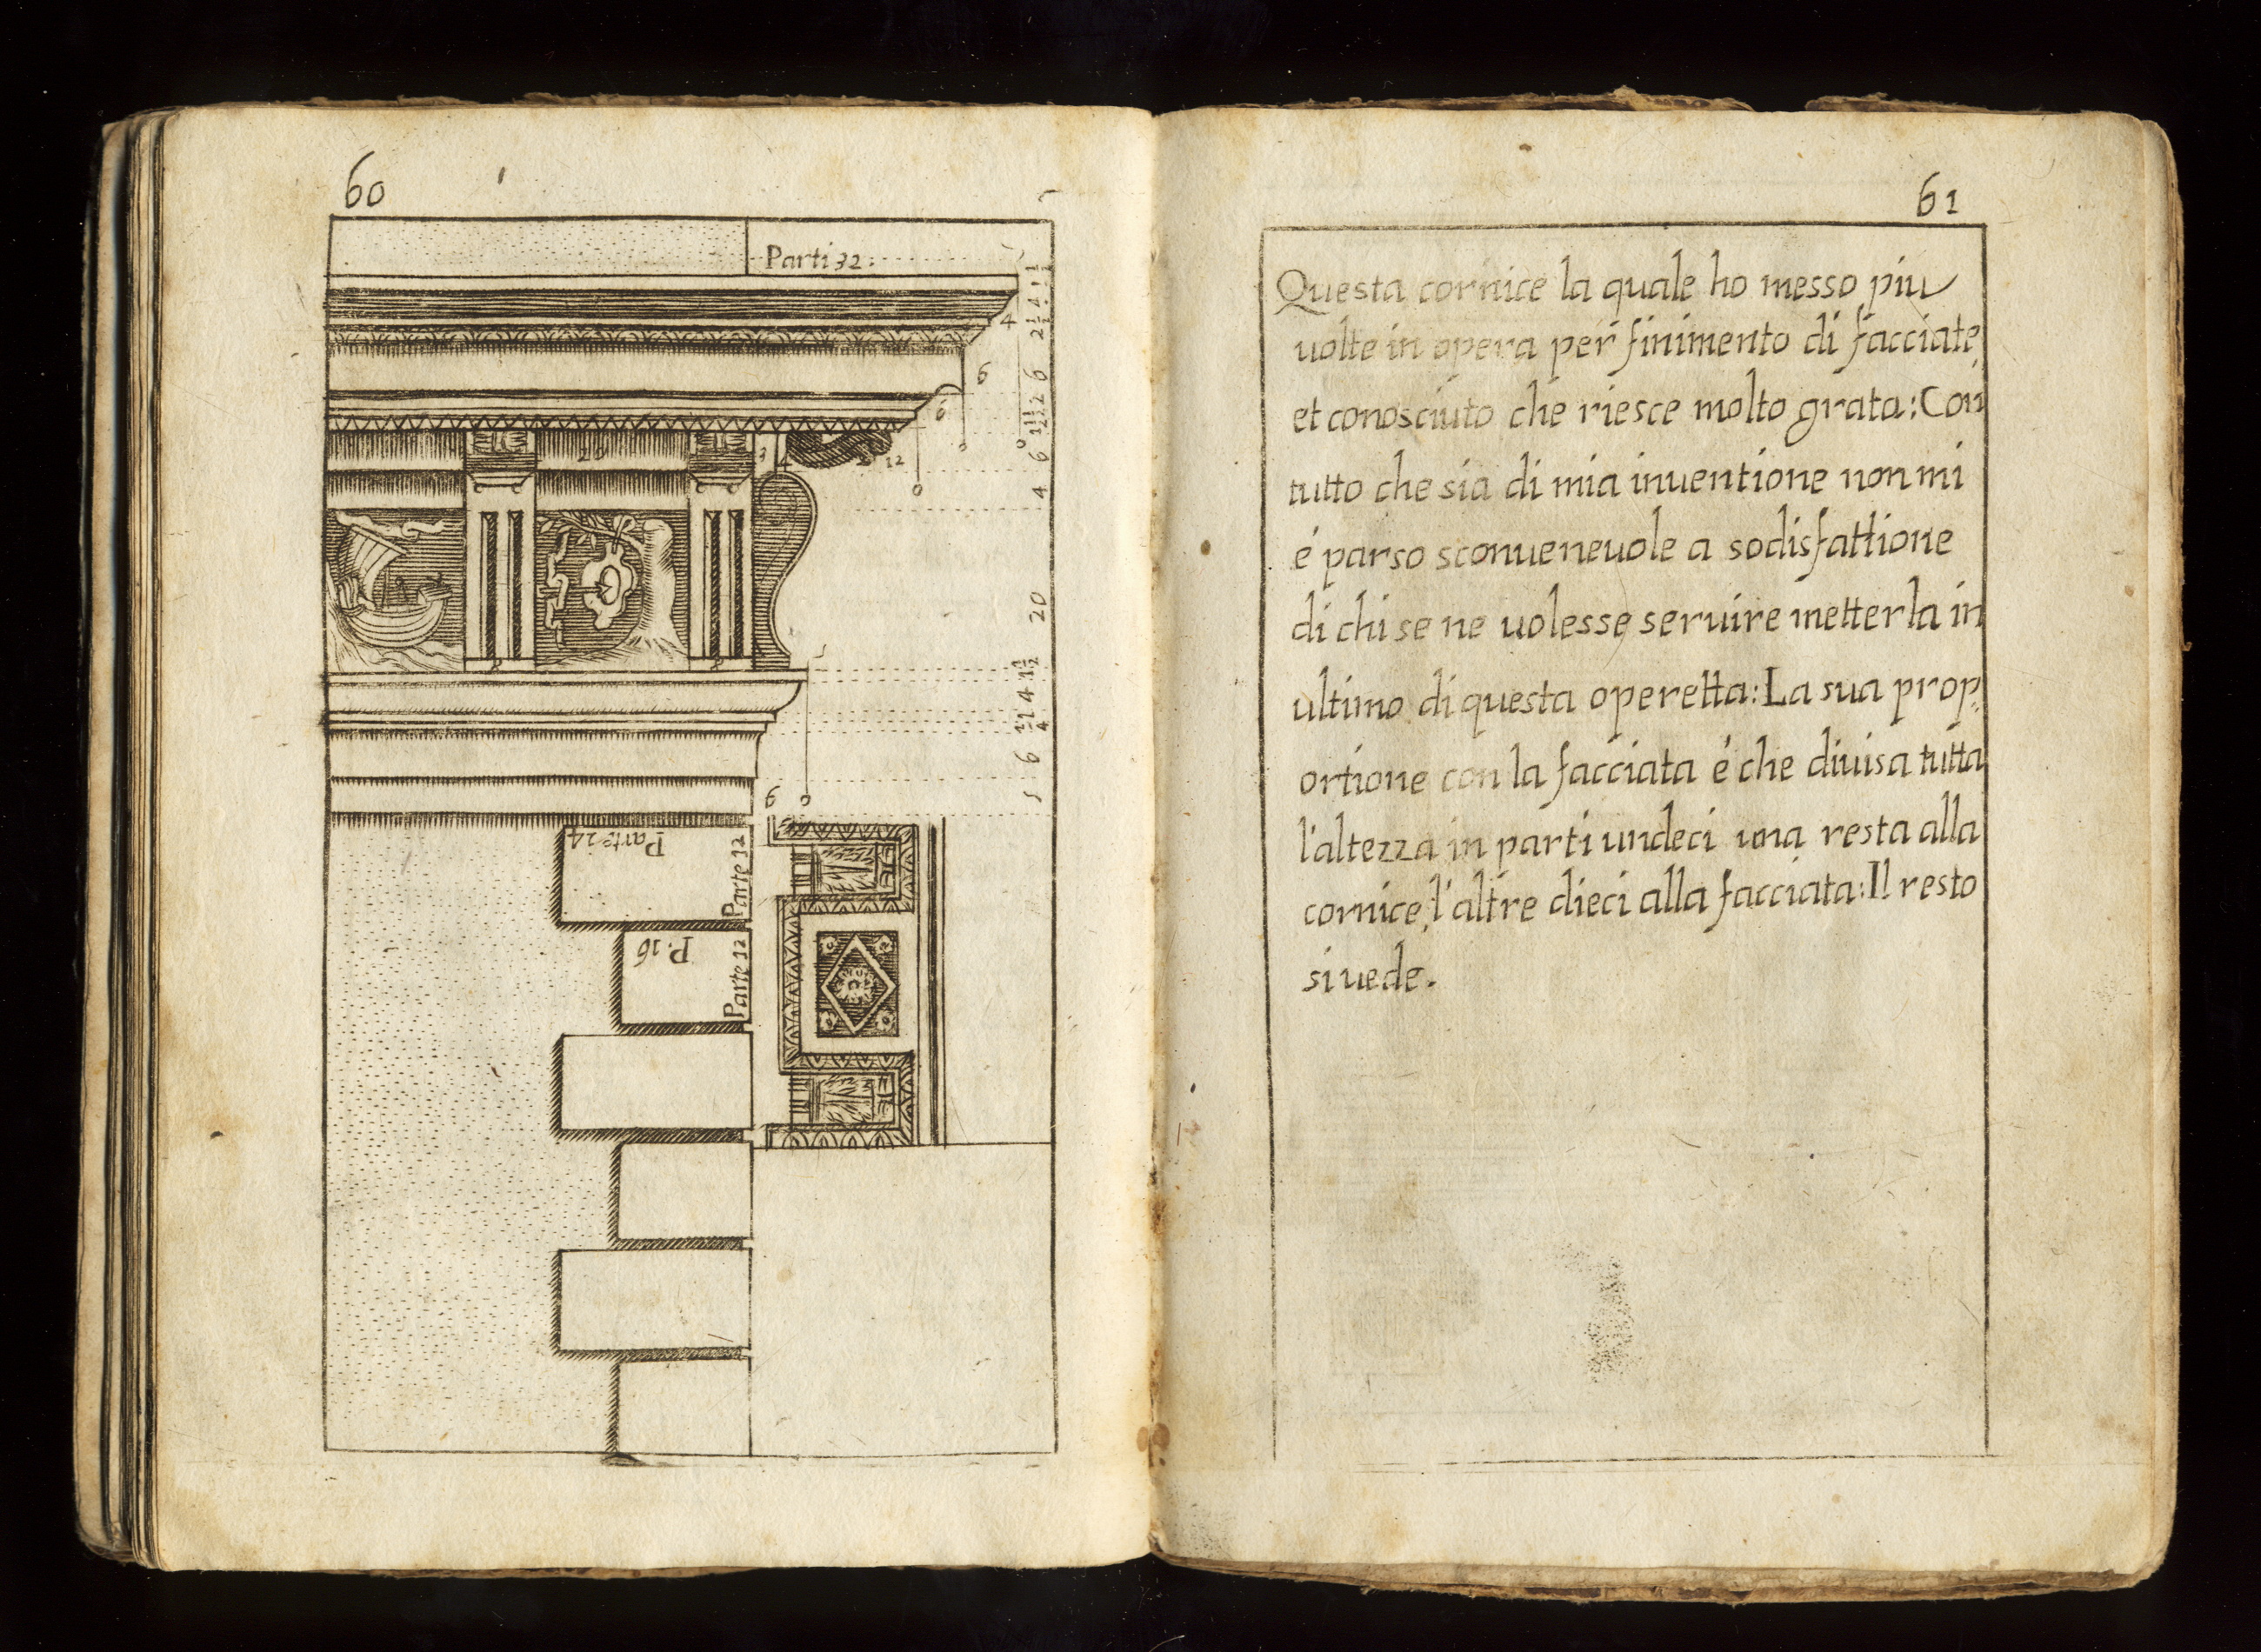 60
Parti 32:
1 1/2
4
4
2 1/2
6
6
2
6
6
20
3
4
12
4
20
4
6
6
5
Parte 24
Parte 12
P. 16
Parte 12
61
Questa cornice la quale ho messo piu
uolte in opera per finimento di facciate,
et conosciuto che riesce molto grata: Con
tutto che sia di mia inuentione non mi
é parso sconueneuole a sodisfattione
di chi se ne uolesse seruire metterla in
ultimo di questa operetta: La sua prop⸗
ortione con la facciata é che diuisa tutta
l'altezza in parti undeci una resta alla
cornice, l'altre dieci alla facciata: Il resto
si uede.